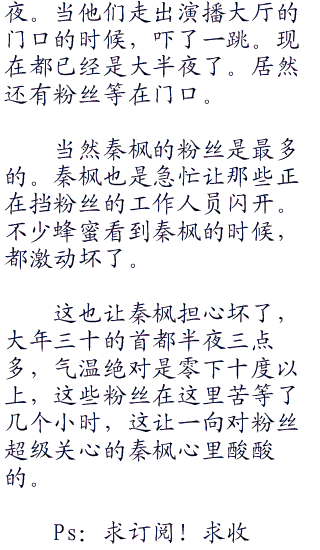 夜。当他们走出演播大厅的
门口的时候，吓了一跳。现
在都已经是大半夜了。居然
还有粉丝等在门口。
当然秦枫的粉丝是最多
的。秦枫也是急忙让那些正
在挡粉丝的工作人员闪开。
不少蜂蜜看到秦枫的时候，
都激动坏了。
这也让秦枫担心坏了，
大年三十的首都半夜三点
多，气温绝对是零下十度以
上，这些粉丝在这里苦等了
几个小时，这让一向对粉丝
超级关心的秦枫心里酸酸
的。
Ps：求订阅！求收